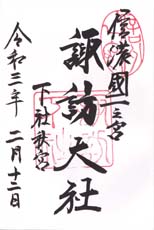 信濃國一之宮
諏訪大社
下社秋宮
令和三年二月十三日